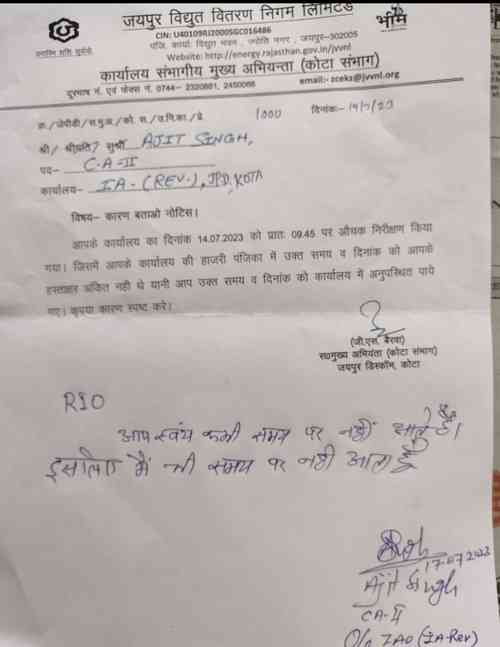 जयपुर विद्युत वितरण निगम लिमिटेड
CIN: U40109RJ2000SGC016486
पंजि. कार्या: विद्युत भवन, ज्योति नगर, जयपुर-302005
Website: http://energy.rajasthan.gov.in/jvvnl
भीम
कार्यालय संभागीय मुख्य अभियन्ता (कोटा संभाग)
दूरभाष नं. एवं फेक्स नं. 0744- 2320881, 2450066 email:- zcekz@jvvnl.org
क्र./जेपीडी/स.मु.अ./को. स./उ.नि.का./प्रे. 1000 दिनांकः- 14/7/23
श्री/ श्रीमति/ सुश्री AJIT SINGH,
पद- C.A-II
कार्यालय- IA-(REV.), JPD, KOTA
विषय- कारण बताओ नोटिस।
आपके कार्यालय का दिनांक 14.07.2023 को प्रातः 09.45 पर औचक निरीक्षण किया
गया। जिसमें आपके कार्यालय की हाजरी पंजिका में उक्त समय व दिनांक को आपके
हस्ताक्षर अंकित नही थे यानी आप उक्त समय व दिनांक को कार्यालय मे अनुपस्थित पाये
गए। कृपया कारण स्पष्ट करे।
(जी.एस. बैरवा)
स०मुख्य अभियंता (कोटा संभाग)
जयपुर डिस्कॉम, कोटा
RIO
आप स्वंय कभी समय पर नहीं आते हैं।
इसलिए मैं भी समय पर नही आता हूँ
17-07-2023
Ajit Singh
CA-II
O/o ZAO (IA-Rev)